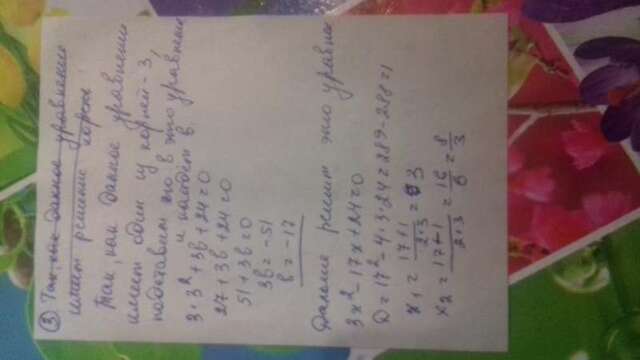 ③ Так, как данное уравнение
имеет решение корень
Так, как данное уравнение
имеет один из корней - 3,
подставим его в это уравнение
и найдём в.
3·3²+3в+24=0
27+3в+24=0
51+3в=0
3в=-51
в=-17
Дальше решим это уравнен
3x²-17x+24=0
D=17²-4·3·24=289-288=1
x₁=\frac{17+1}{2·3}=3
x₂=\frac{17-1}{2·3}=\frac{16}{6}=\frac{8}{3}